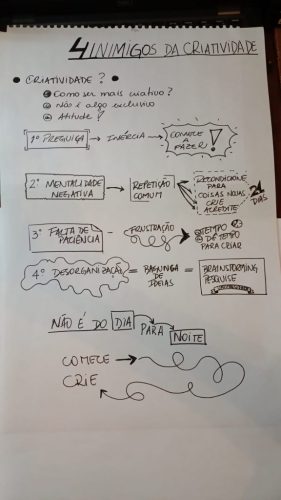 4 INIMIGOS DA CRIATIVIDADE
CRIATIVIDADE?
Como ser mais criativo?
Não é algo exclusivo
Atitude?
1º PREGUIÇA → INÉRCIA → COMECE A FAZER!
2º MENTALIDADE NEGATIVA → REPETIÇÃO COMUM
RECONDICIONE PARA COISAS NOVAS CRIE ACREDITE
21 DIAS
3º FALTA DE PACIÊNCIA - FRUSTRAÇÃO
TEMPO
DÊ TEMPO PARA CRIAR
4º DESORGANIZAÇÃO = BAGUNÇA DE IDEIAS = BRAINSTORMING, PESQUISE
NÃO É DO DIA PARA NOITE
COMECE
CRIE